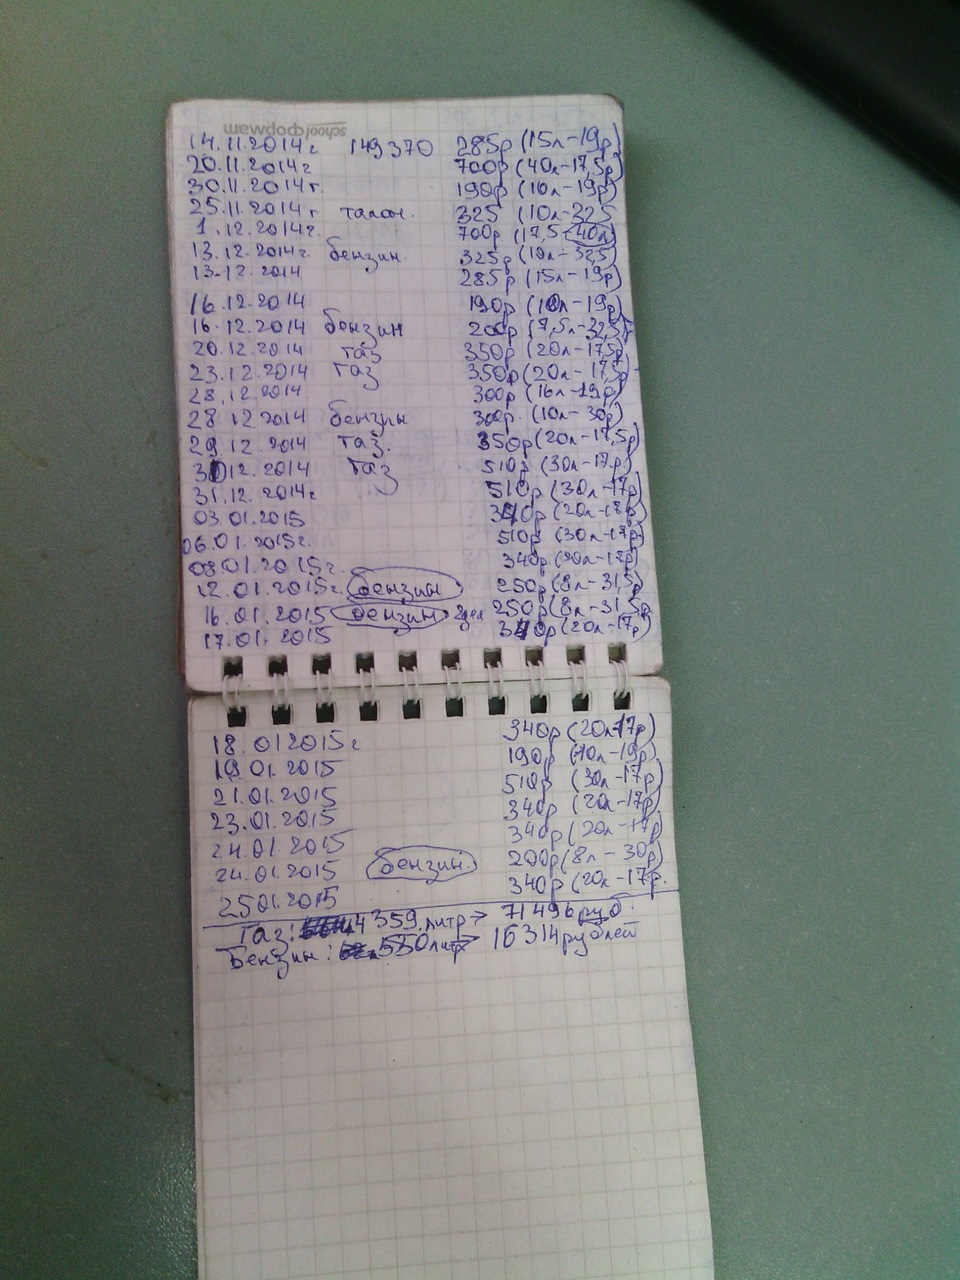 school формат
14.11.2014г 149370 285р (15л-19р)
20.11.2014г 700р (40л-17,5р)
30.11.2014г. 190р (10л-19р)
25.11.2014г талон. 325 (10л-325
1.12.2014г. 700р (17,5-40л)
13.12.2014г. бензин. 325р (10л-32,5)
13.12.2014 285р (15л-19р)
16.12.2014 190р (10л-19р)
16.12.2014 бензин 200р (7,5л-32,5)
20.12.2014 газ 350р (20л-17,5р)
23.12.2014 газ 350р (20л-17,5р)
28.12.2014 300р (16л-19р)
28 12 2014 бензин 300р. (10л-30р)
29 12 2014 газ. 350р (20л-17,5р)
30 12. 2014 газ 510р (30л-17р)
31.12.2014г 510р (30л-17р)
03.01.2015 340р (20л-17р)
06.01.2015г. 510р (30л-17р)
08.01.2015г. 340р (20л-17р)
12.01.2015г. бензин 250р (8л-31,5р)
16.01.2015 бензин 250р (8л-31,5р)
17.01.2015 340р (20л-17р)
18.01 2015г 340р (20л-17р)
19.01.2015 190р (10л-19р)
21.01.2015 510р (30л-17р)
23.01.2015 340р (20л-17р)
24.01.2015 340р (20л-17р)
24.01.2015 бензин. 200р (8л-30р)
25 01 2015 340р (20л-17р.
Газ: 4359 литр → 71496 руб.
Бензин: 550 литр → 16314 рублей